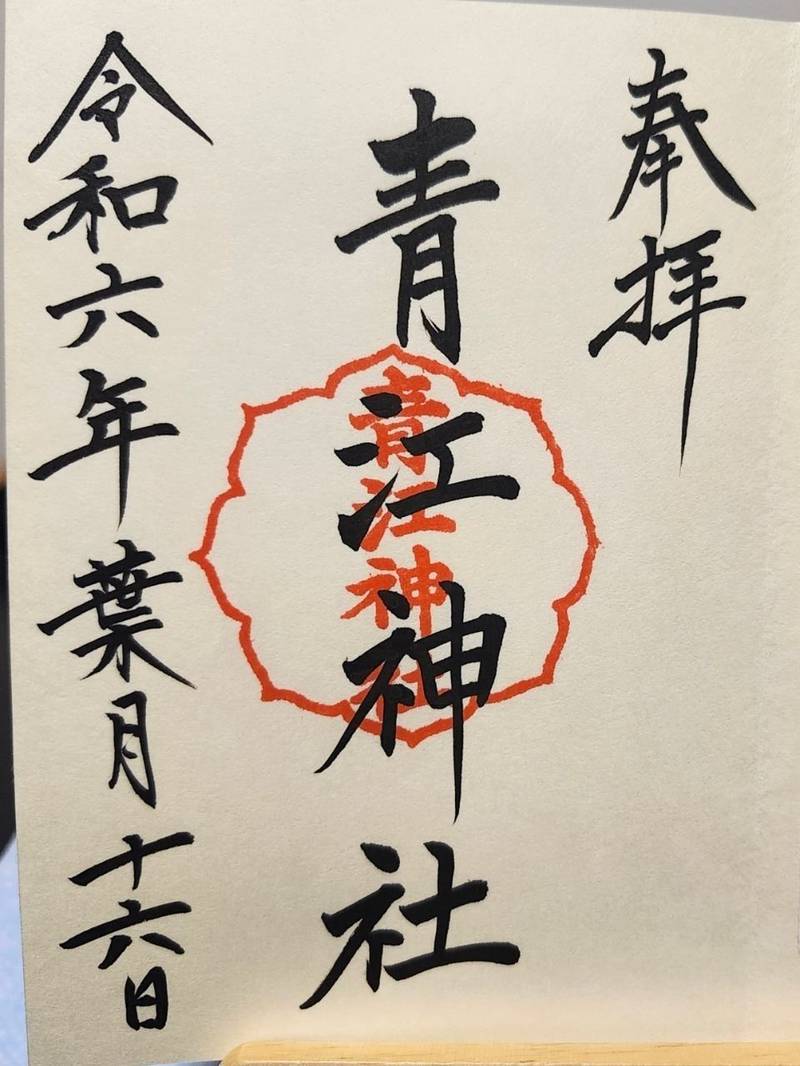 奉拝
青江神社
青江神社
令和六年葉月十六日